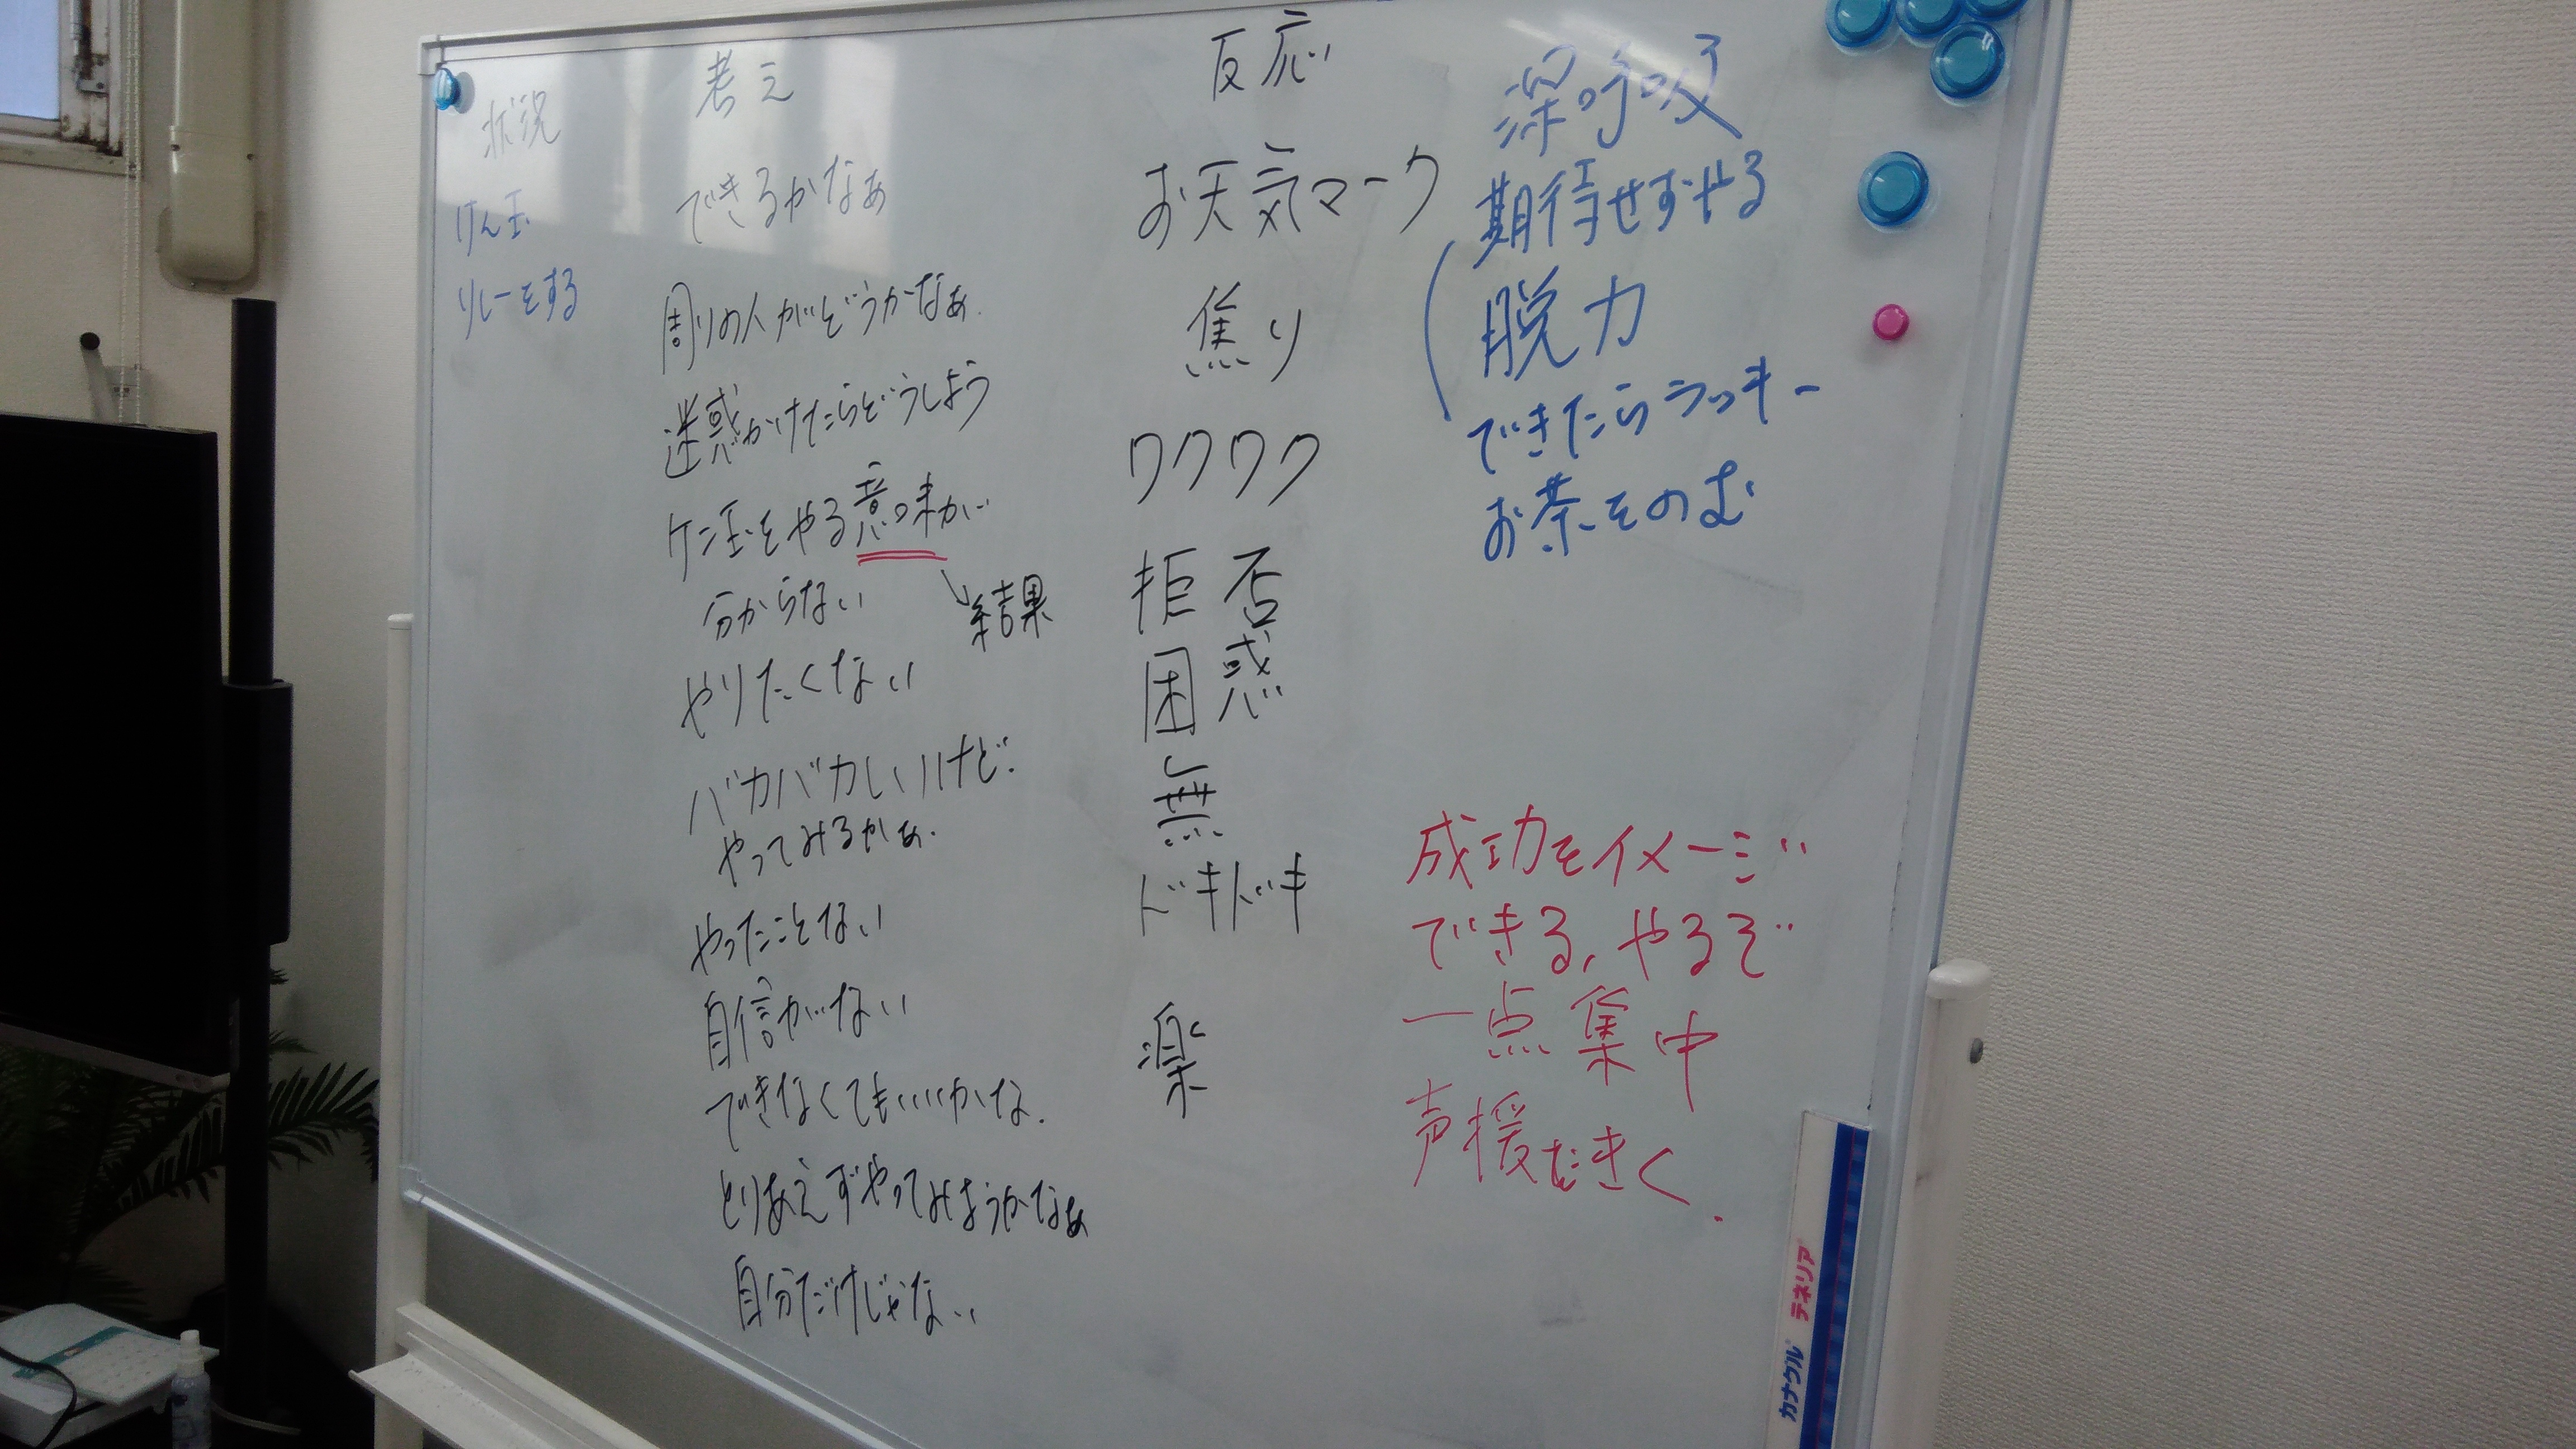 状況
けん玉
リレーをする
考え
できるかなぁ
周りの人がどうかなぁ.
迷惑かけたらどうしよう
ケン玉をやる意味が
分からない
結果
やりたくない
バカバカしいけど.
やってみるかぁ.
やったことない
自信がない
できなくてもいいかな.
とりあえずやってみようかなぁ
自分だけじゃない
反応
お天気マーク
焦り
ワクワク
拒否
困惑
無
ドキドキ
楽
深呼吸
期待せずやる
脱力
できたらラッキー
お茶をのむ
成功をイメージ
できる、やるぞ
一点集中
声援をきく.
カナクル テネリア